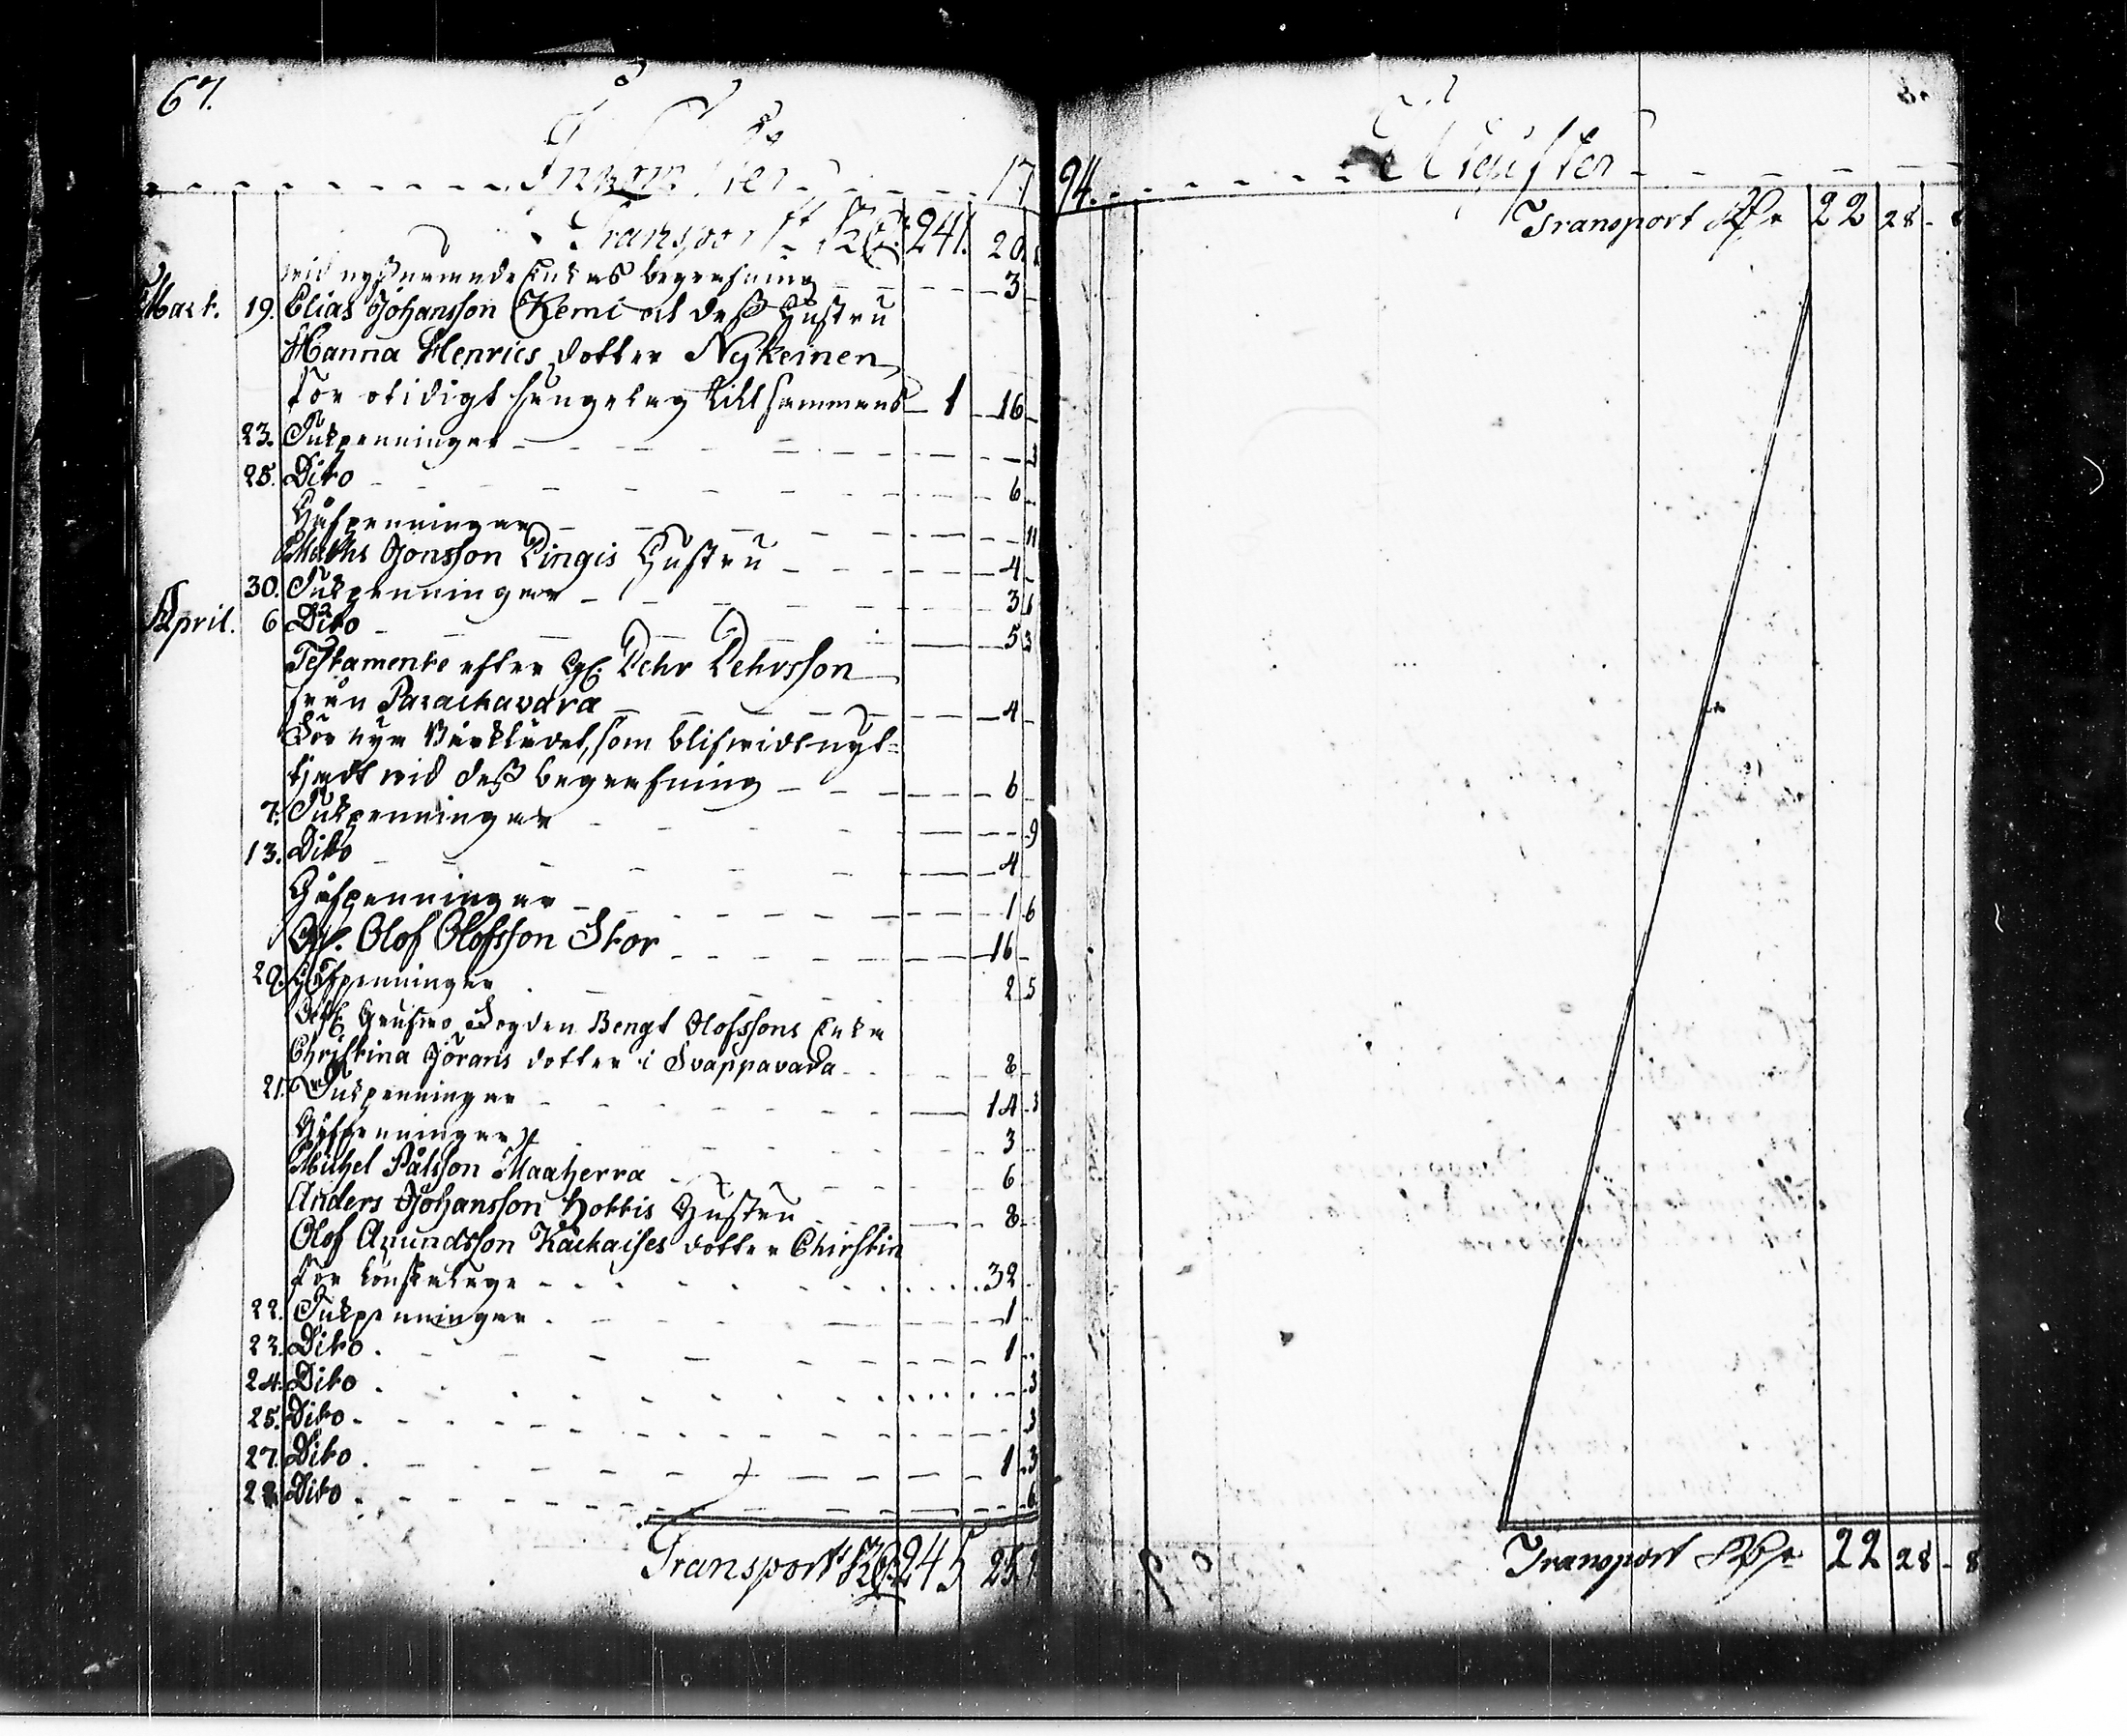 67.
Inkomster 17
Transport Rdr 241. 20.
wid nyssnemnde Enkas begrafning 3
Mart. 19. Elias Johansson Kemi ok dess Hustru
Hanna Henrics dotter Nykeinen
för otidigt sängelag tillsammans 1 16
23. Tukpenningar 3
25. Dito 6
Håfpenningar 11
Maths Jonsson Pingis Hustru 4
30. Tukpenningar 3 6
April. 6 Dito 5 3
Testamente efter Gl. Pehr Pehrsson
från Parackavara 4
för nya Bårklädet, som blifwidt nyt-
tjadt wid dess begrafning 6
7. Tukpenningar 9
13. Dito 4
Håfpenningar 1 6
Gl. Olof Olofsson Stor 16
20. Håfpenningar 2 5
Grufwo Fogden Bengt Olofssons Enka
Christina Jörans dotter i Svappavara 8
21. Tukpenningar 14 3
Håfpenningar 3
Michel Pålsson Maaherra 6
Anders Johansson Hottis Hustru 8
Olof Amundsson Kackaises dotter Chirstin
för lönskalage 32
22. Tukpenningar 1
23. Dito 1
24. Dito 3
25. Dito 3
27. Dito 1 3
28. Dito 6
Transport Rdr 245 25.
94. Utgifter
Transport Rdr 22 28 - 8
Transport Rdr 22 28 - 8